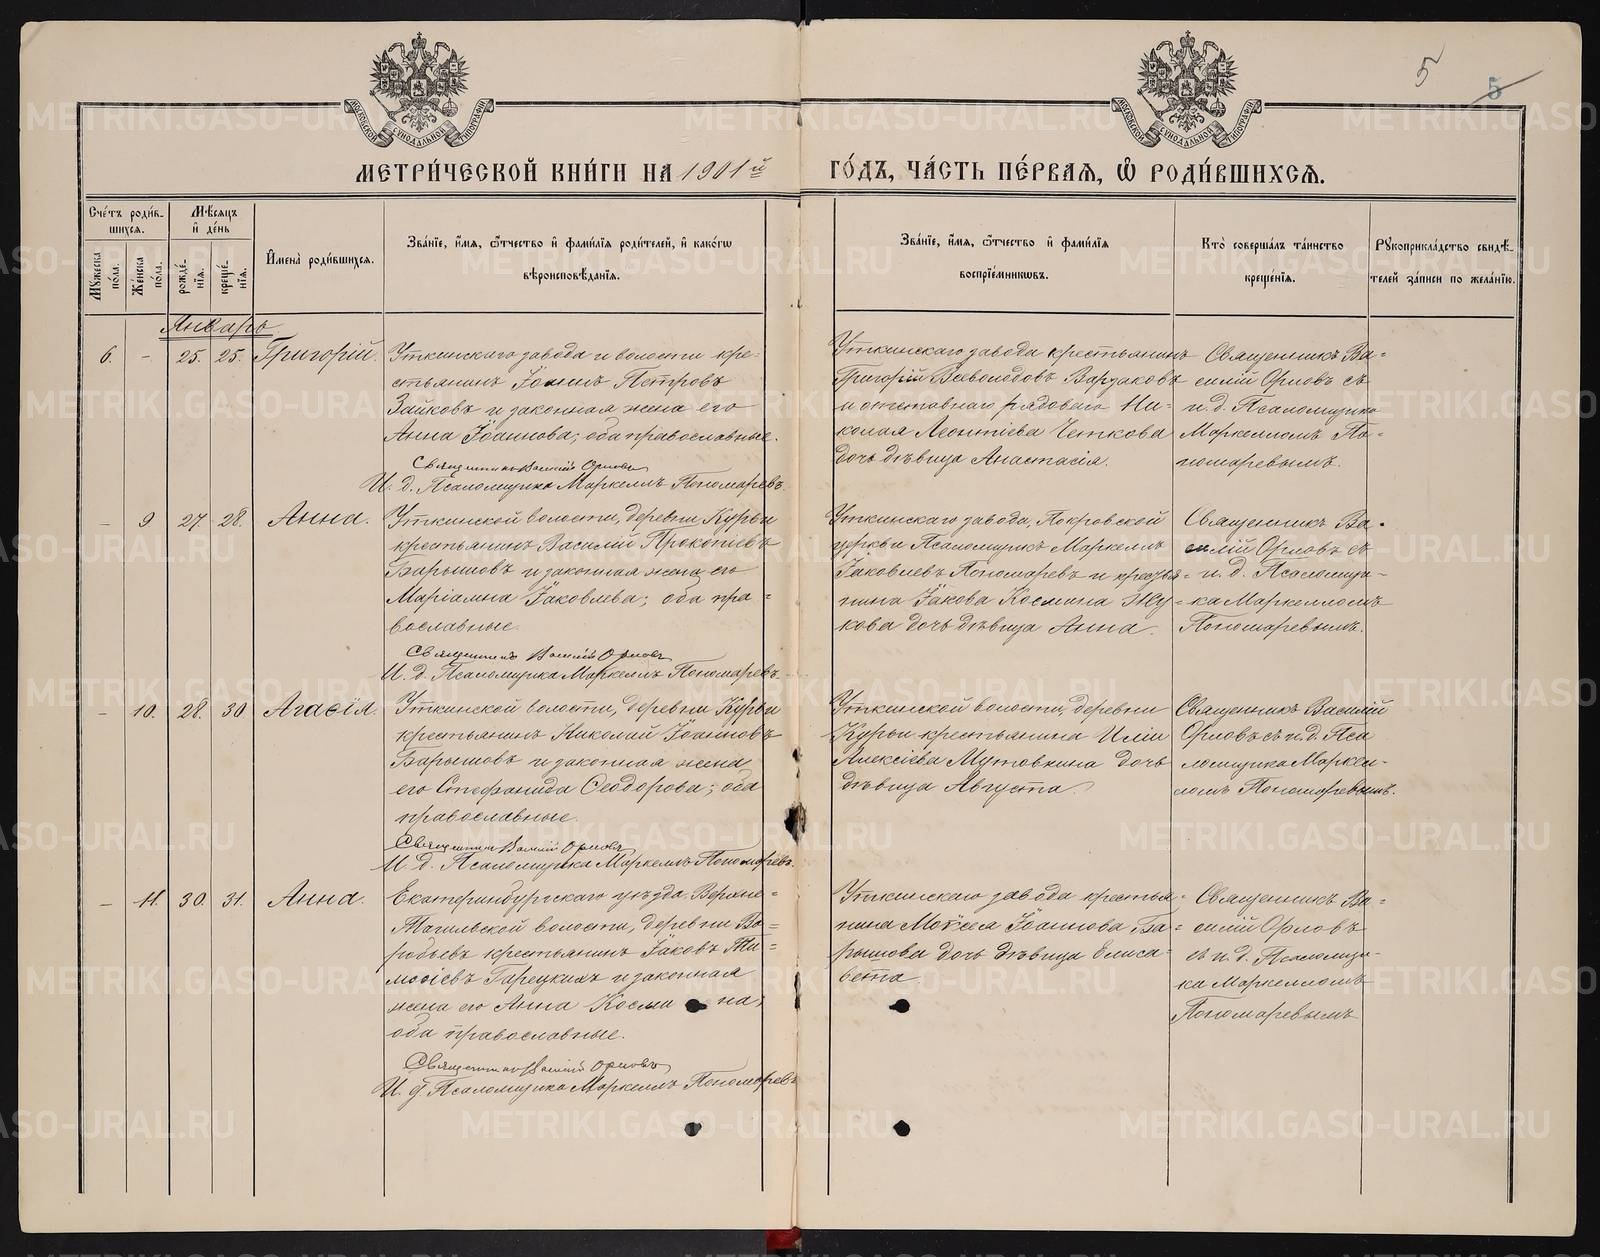 5
5
МОСКОВСКОЙ СѴНОДАЛЬНОЙ ТИПОГРАФІИ
МОСКОВСКОЙ СѴНОДАЛЬНОЙ ТИПОГРАФІИ
МЕТРИ́ЧЕСКОЙ КНИ́ГИ НА 1901й ГО́ДЪ, ЧА́СТЬ ПЕ́РВАѦ, Ѽ РОДИ́ВШИХСѦ.
Сче́тъ роди́в-
шихсѧ.
Мꙋжеска по́ла.
Же́нска по́ла.
Мѣ́сѧцъ
и҆ де́нь
рожде́-нїѧ.
креще́-нїѧ.
И҆мена̀ роди́вшихсѧ.
Зва́нїе, и҆́мѧ, ѻ҆́тчество и҆ фами́лїѧ роди́телей, и҆ како́гѡ
вѣроисповѣ́данїѧ.
Зва́нїе, и҆́мѧ, ѻ҆́тчество и҆ фами́лїѧ
воспрїе́мникѡвъ.
Кто̀ соверша́лъ та́инство
креще́нїѧ.
Рꙋкоприкла́дство свидѣ́-
телей за́писи по жела́нїю.
Январь
6. - 25. 25. Григорій.
Уткинскаго завода и волости кре-
стьянинъ Іоаннъ Петровъ
Зайковъ и законная жена его
Анна Іоаннова; оба православные.
Священникъ Василій Орловъ
И. д. Псаломщика Маркеллъ Пономаревъ.
Уткинскаго завода крестьянинъ
Григорій Всеволодовъ Варзаковъ
и отставнаго рядоваго Ни-
колая Леонтіева Четкова
дочь дѣвица Анастасія.
Священникъ Ва-
силій Орловъ съ
и. д. Псаломщика
Маркелломъ По-
номаревымъ.
- 9 27. 28. Анна.
Уткинской волости, деревни Курьи
крестьянинъ Василій Прокопіевъ
Барышовъ и законная жена его
Маріамна Іаковлева; оба пра-
вославные.
Священникъ Василій Орловъ
И. д. Псаломщика Маркеллъ Пономаревъ.
Уткинскаго завода, Покровской
церкви Псаломщикъ Маркеллъ
Іаковлевъ Пономаревъ и крестья-
нина Іакова Космина Жу-
кова дочь дѣвица Анна.
Священникъ Ва-
силій Орловъ съ
и. д. Псаломщи-
ка Маркелломъ
Пономаревымъ.
- 10. 28. 30 Агасія.
Уткинской волости, деревни Курьи
крестьянинъ Николай Іоанновъ
Барышовъ и законная жена
его Стефанида Ѳеодорова; оба
православные.
Священникъ Василій Орловъ
И. д. Псаломщика Маркеллъ Пономаревъ.
Уткинской волости, деревни
Курьи крестьянина Иліи
Алексіева Мутовкина дочь
дѣвица Августа.
Священникъ Василій
Орловъ съ и.д. Пса
ломщика Маркел-
ломъ Пономаревымъ.
- 11. 30. 31. Анна.
Екатеринбургскаго уѣзда, Верхне-
Тагильской волости, деревни Во-
робьевъ крестьянинъ Іаковъ Ти-
моѳіевъ Гарецкихъ и законная
жена его Анна Косьми на;
оба православные.
Священникъ Василій Орловъ
И. д. Псаломщика Маркеллъ Пономаревъ
Уткинскаго завода крестья-
нина Моѵсея Іоаннова Ба-
рышова дочь дѣвица Елиса-
вета
Священникъ Ва-
силій Орловъ
съ и. д. Псаломщи-
ка Маркелломъ
Пономаревымъ
METRIKI.GASO-URAL.RU